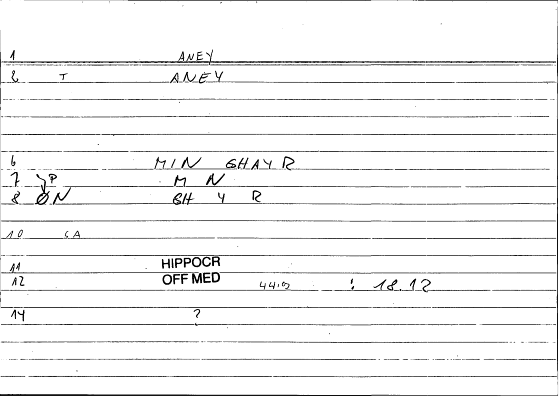 1 ANEY
2 T ANEY
6 MIN GHAYR
7 P M N
8 ØN GH Y R
10 GA
11 HIPPOCR
12 OFF MED : 18.12
14 ?